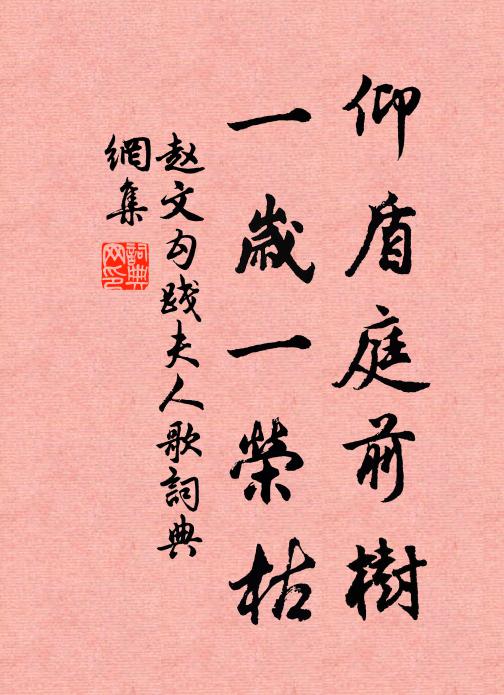 仰盾庭前樹
一歲一榮枯
赵文勾踐夫人歌詞典
網集
詞典
网印